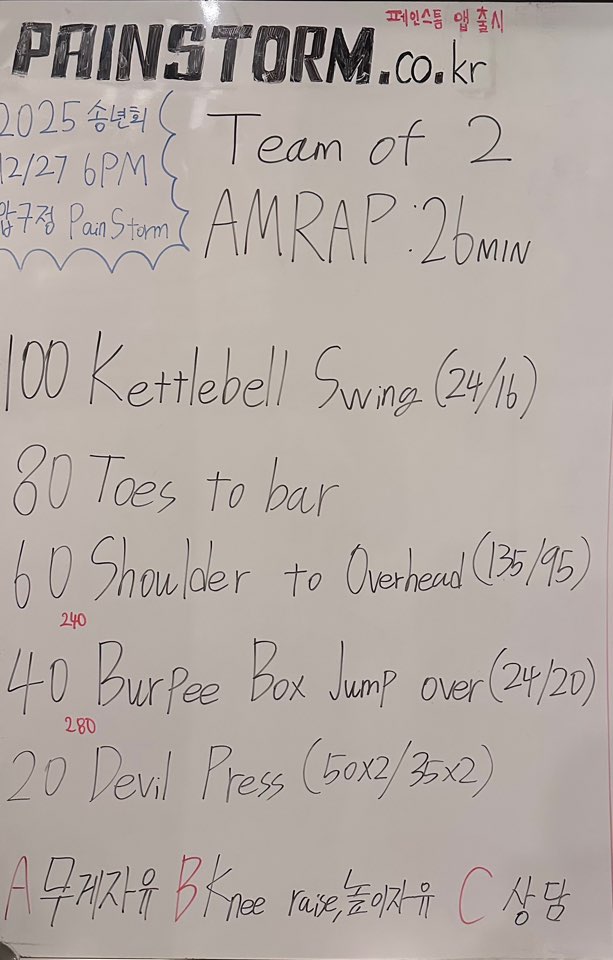 페인스톰 앱 출시
PAINSTORM.co.kr
2025 송년회
12/27 6PM
압구정 PainStorm
Team of 2
AMRAP:26MIN
100 Kettlebell Swing (24/16)
80 Toes to bar
60 Shoulder to Overhead (135/95)
240
40 Burpee Box Jump over (24/20)
280
20 Devil Press (50x2/35x2)
A 무게자유 B Knee raise, 높이자유 C 상담